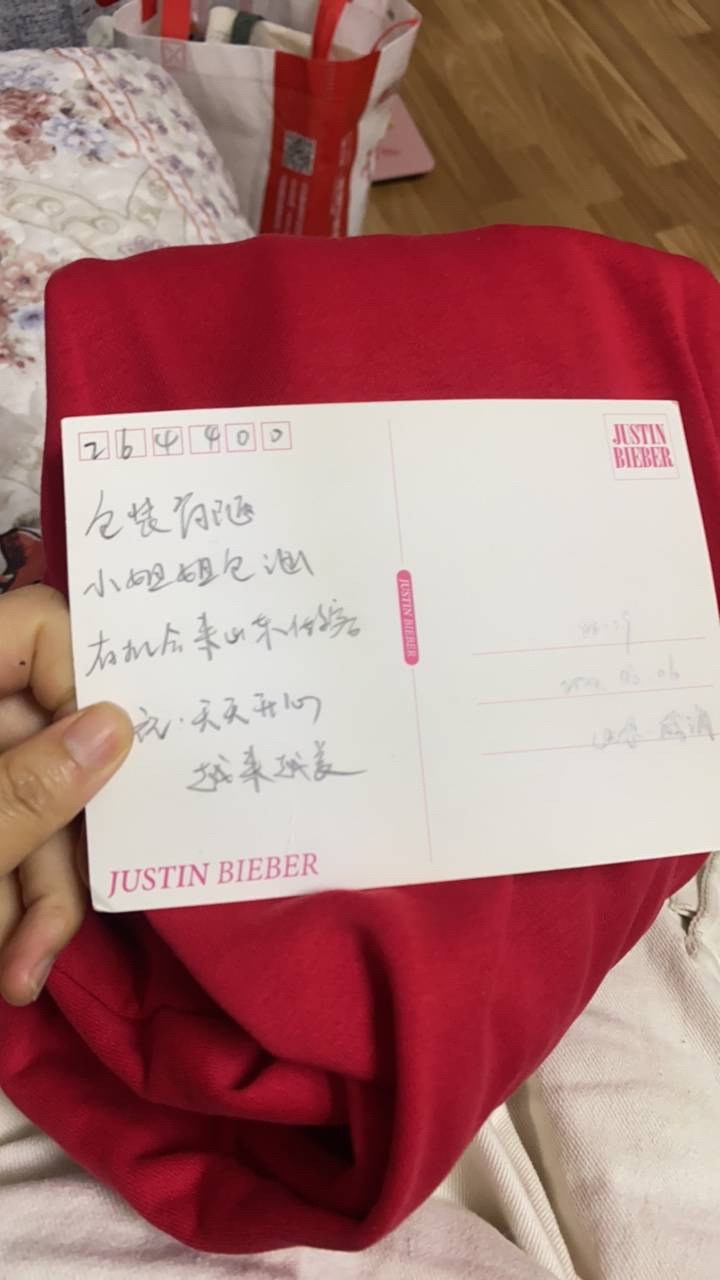 264400
包装简陋
小姐姐包涵
有机会来山东做客
祝:天天开心
越来越美
JUSTIN BIEBER
JUSTIN BIEBER
JUSTIN
BIEBER